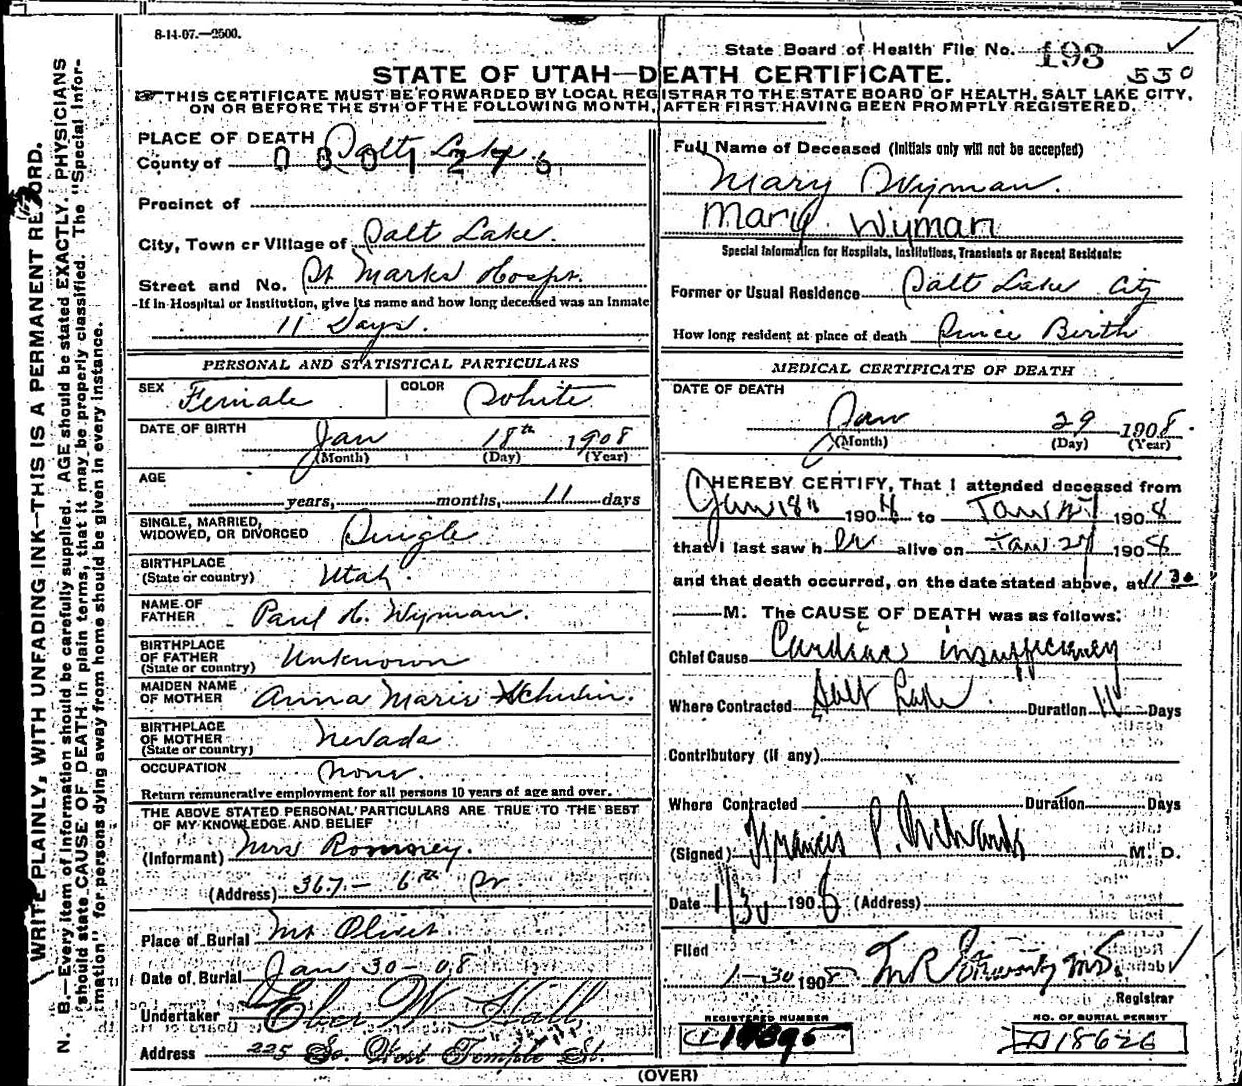 8-14-07.—2500.
State Board of Health File No. 193
550
STATE OF UTAH—DEATH CERTIFICATE.
THIS CERTIFICATE MUST BE FORWARDED BY LOCAL REGISTRAR TO THE STATE BOARD OF HEALTH, SALT LAKE CITY,
ON OR BEFORE THE 5TH OF THE FOLLOWING MONTH, AFTER FIRST HAVING BEEN PROMPTLY REGISTERED.
WRITE PLAINLY, WITH UNFADING INK—THIS IS A PERMANENT RECORD.
N. B.—Every item of information should be carefully supplied. AGE should be stated EXACTLY. PHYSICIANS
should state CAUSE OF DEATH in plain terms, that it may be properly classified. The "Special Infor-
mation" for persons dying away from home should be given in every instance.
PLACE OF DEATH
County of Salt Lake
0801276
Precinct of
City, Town or Village of Salt Lake.
Street and No. St Marks Hospt.
If in Hospital or Institution, give its name and how long deceased was an inmate
11 Days.
PERSONAL AND STATISTICAL PARTICULARS
SEX Female COLOR White
DATE OF BIRTH Jan 18th 1908
(Month) (Day) (Year)
AGE
years, months, 11 days
SINGLE, MARRIED,
WIDOWED, OR DIVORCED Single
BIRTHPLACE
(State or country) Utah
NAME OF
FATHER Paul H. Wyman.
BIRTHPLACE
OF FATHER
(State or country) Unknown
MAIDEN NAME
OF MOTHER Anna Marie
BIRTHPLACE
OF MOTHER
(State or country) Nevada
OCCUPATION None.
Return remunerative employment for all persons 10 years of age and over.
THE ABOVE STATED PERSONAL PARTICULARS ARE TRUE TO THE BEST
OF MY KNOWLEDGE AND BELIEF
(Informant) Mrs Romney.
(Address) 367- 6th
Place of Burial Mt Olivet
Date of Burial Jan 30-08
Undertaker Eber W Hall
Address 225 So. West Temple St.
Full Name of Deceased (Initials only will not be accepted)
Mary Wyman.
Mary Wyman
Special Information for Hospitals, Institutions, Transients or Recent Residents:
Former or Usual Residence Salt Lake City
How long resident at place of death Since Birth
MEDICAL CERTIFICATE OF DEATH
DATE OF DEATH
Jan 29 1908.
(Month) (Day) (Year)
I HEREBY CERTIFY, That I attended deceased from
Jan 18th 1908 to Jan 1908
that I last saw her alive on Jan 1908
and that death occurred, on the date stated above, at 11 30
M. The CAUSE OF DEATH was as follows:
Chief Cause Cardiac insufficiency
Where Contracted Salt Lake Duration 11 Days
Contributory (if any)
Where Contracted Duration Days
(Signed) Francis P. M. D.
Date 1/30 1908 (Address)
Filed
1-30 1908
Registrar
REGISTERED NUMBER
NO. OF BURIAL PERMIT
18626
(OVER)